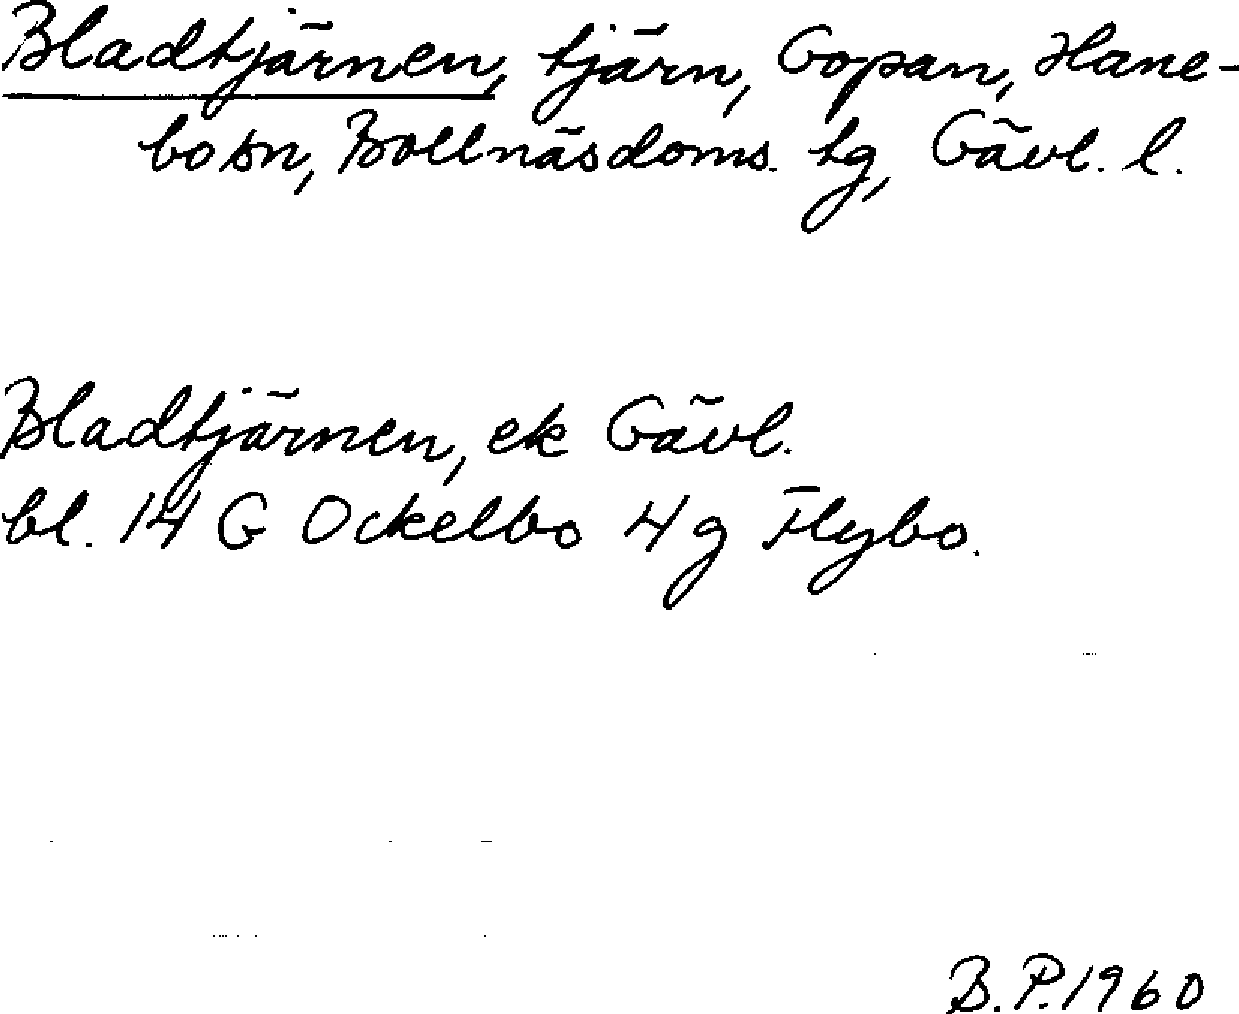 Bladtjärnen, tjärn, Gopan, Hane-
bo sn, Bollnäs doms. tg, Gävl. l.
Bladtjärnen, ek Gävl.
bl. 14 G Ockelbo 4 g Flybo.
B.P. 1960